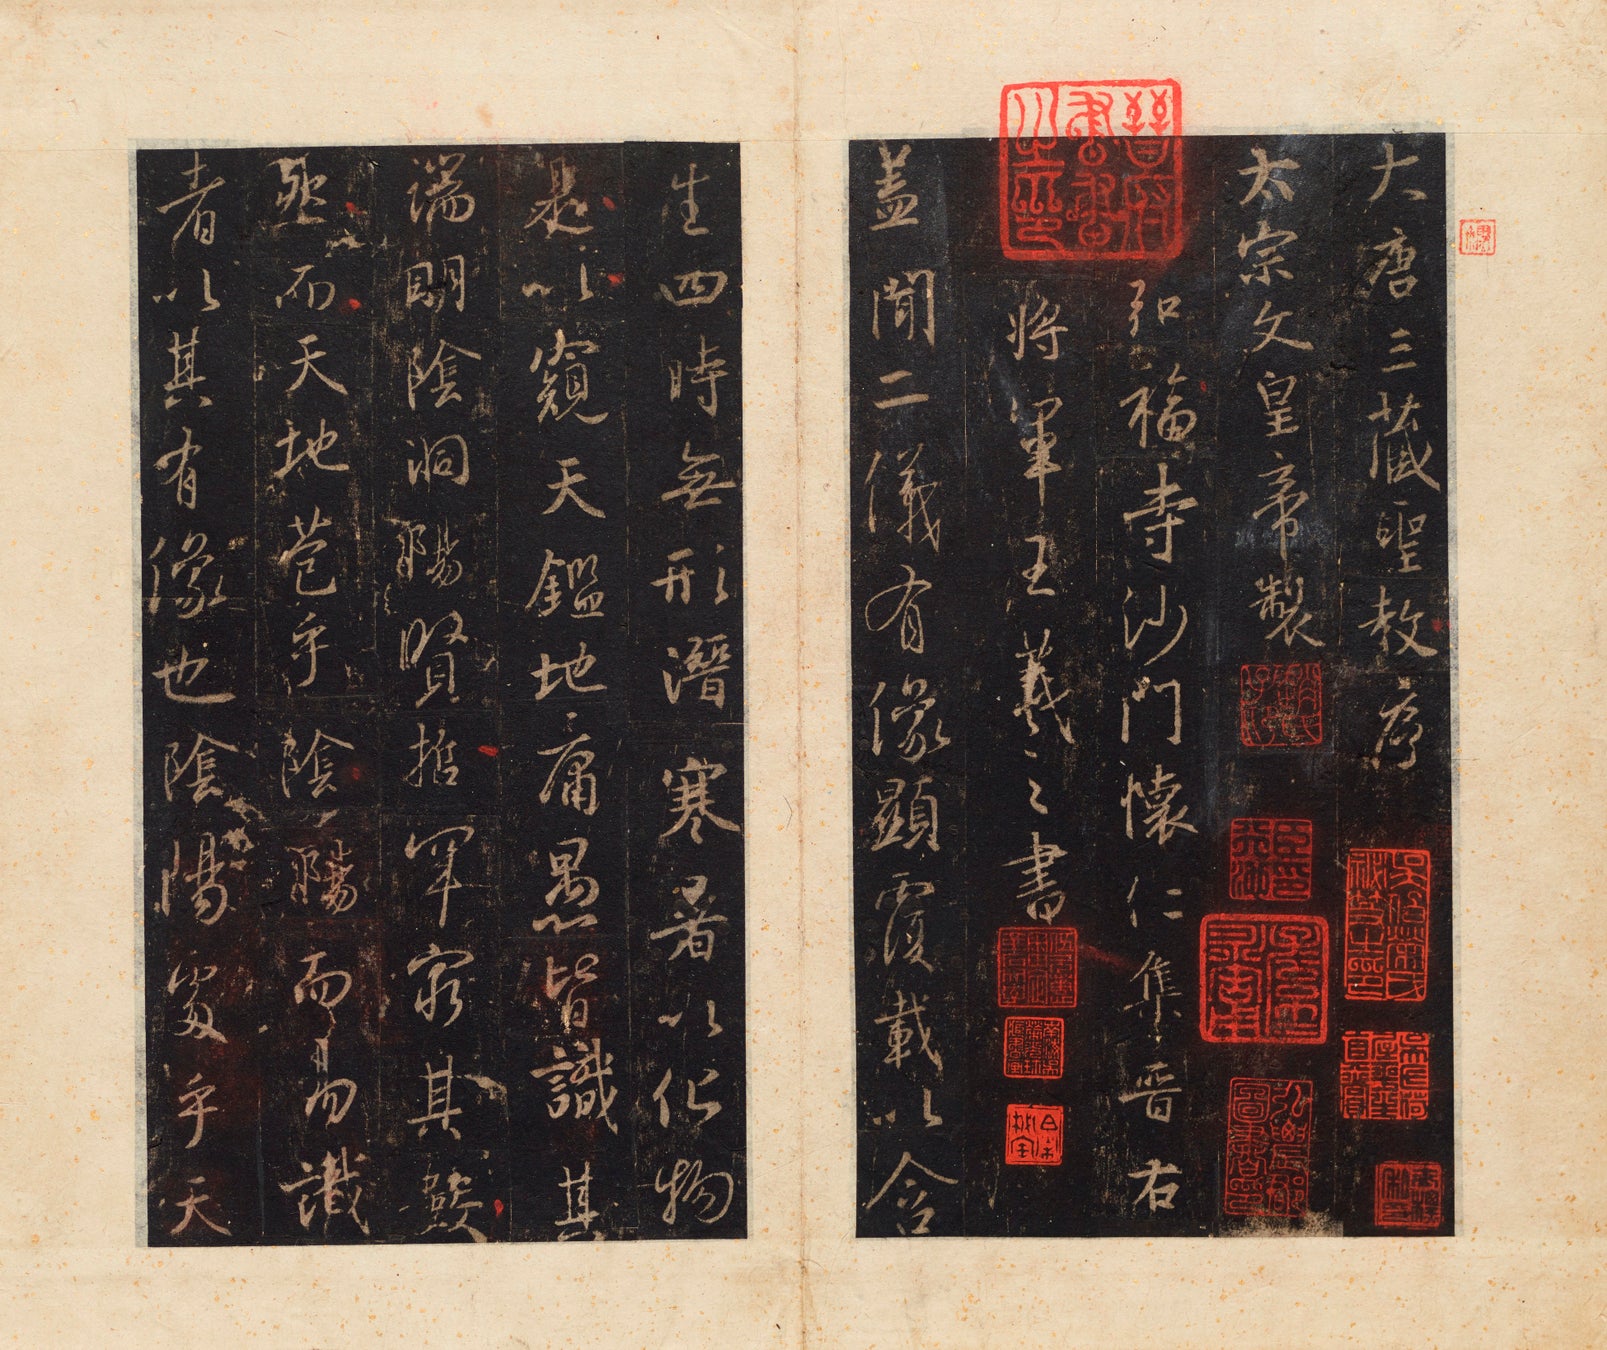 大唐三藏聖教序
太宗文皇帝製
晉府書畫之印
弘福寺沙門懷仁集晉右
將軍王羲之書
蓋聞二儀有像顯覆載以含
生四時無形潛寒暑以化物
是以窺天鑑地庸愚皆識其
端明陰洞陽賢哲罕窮其數
然而天地苞乎陰陽而易識
者以其有像也陰陽處乎天